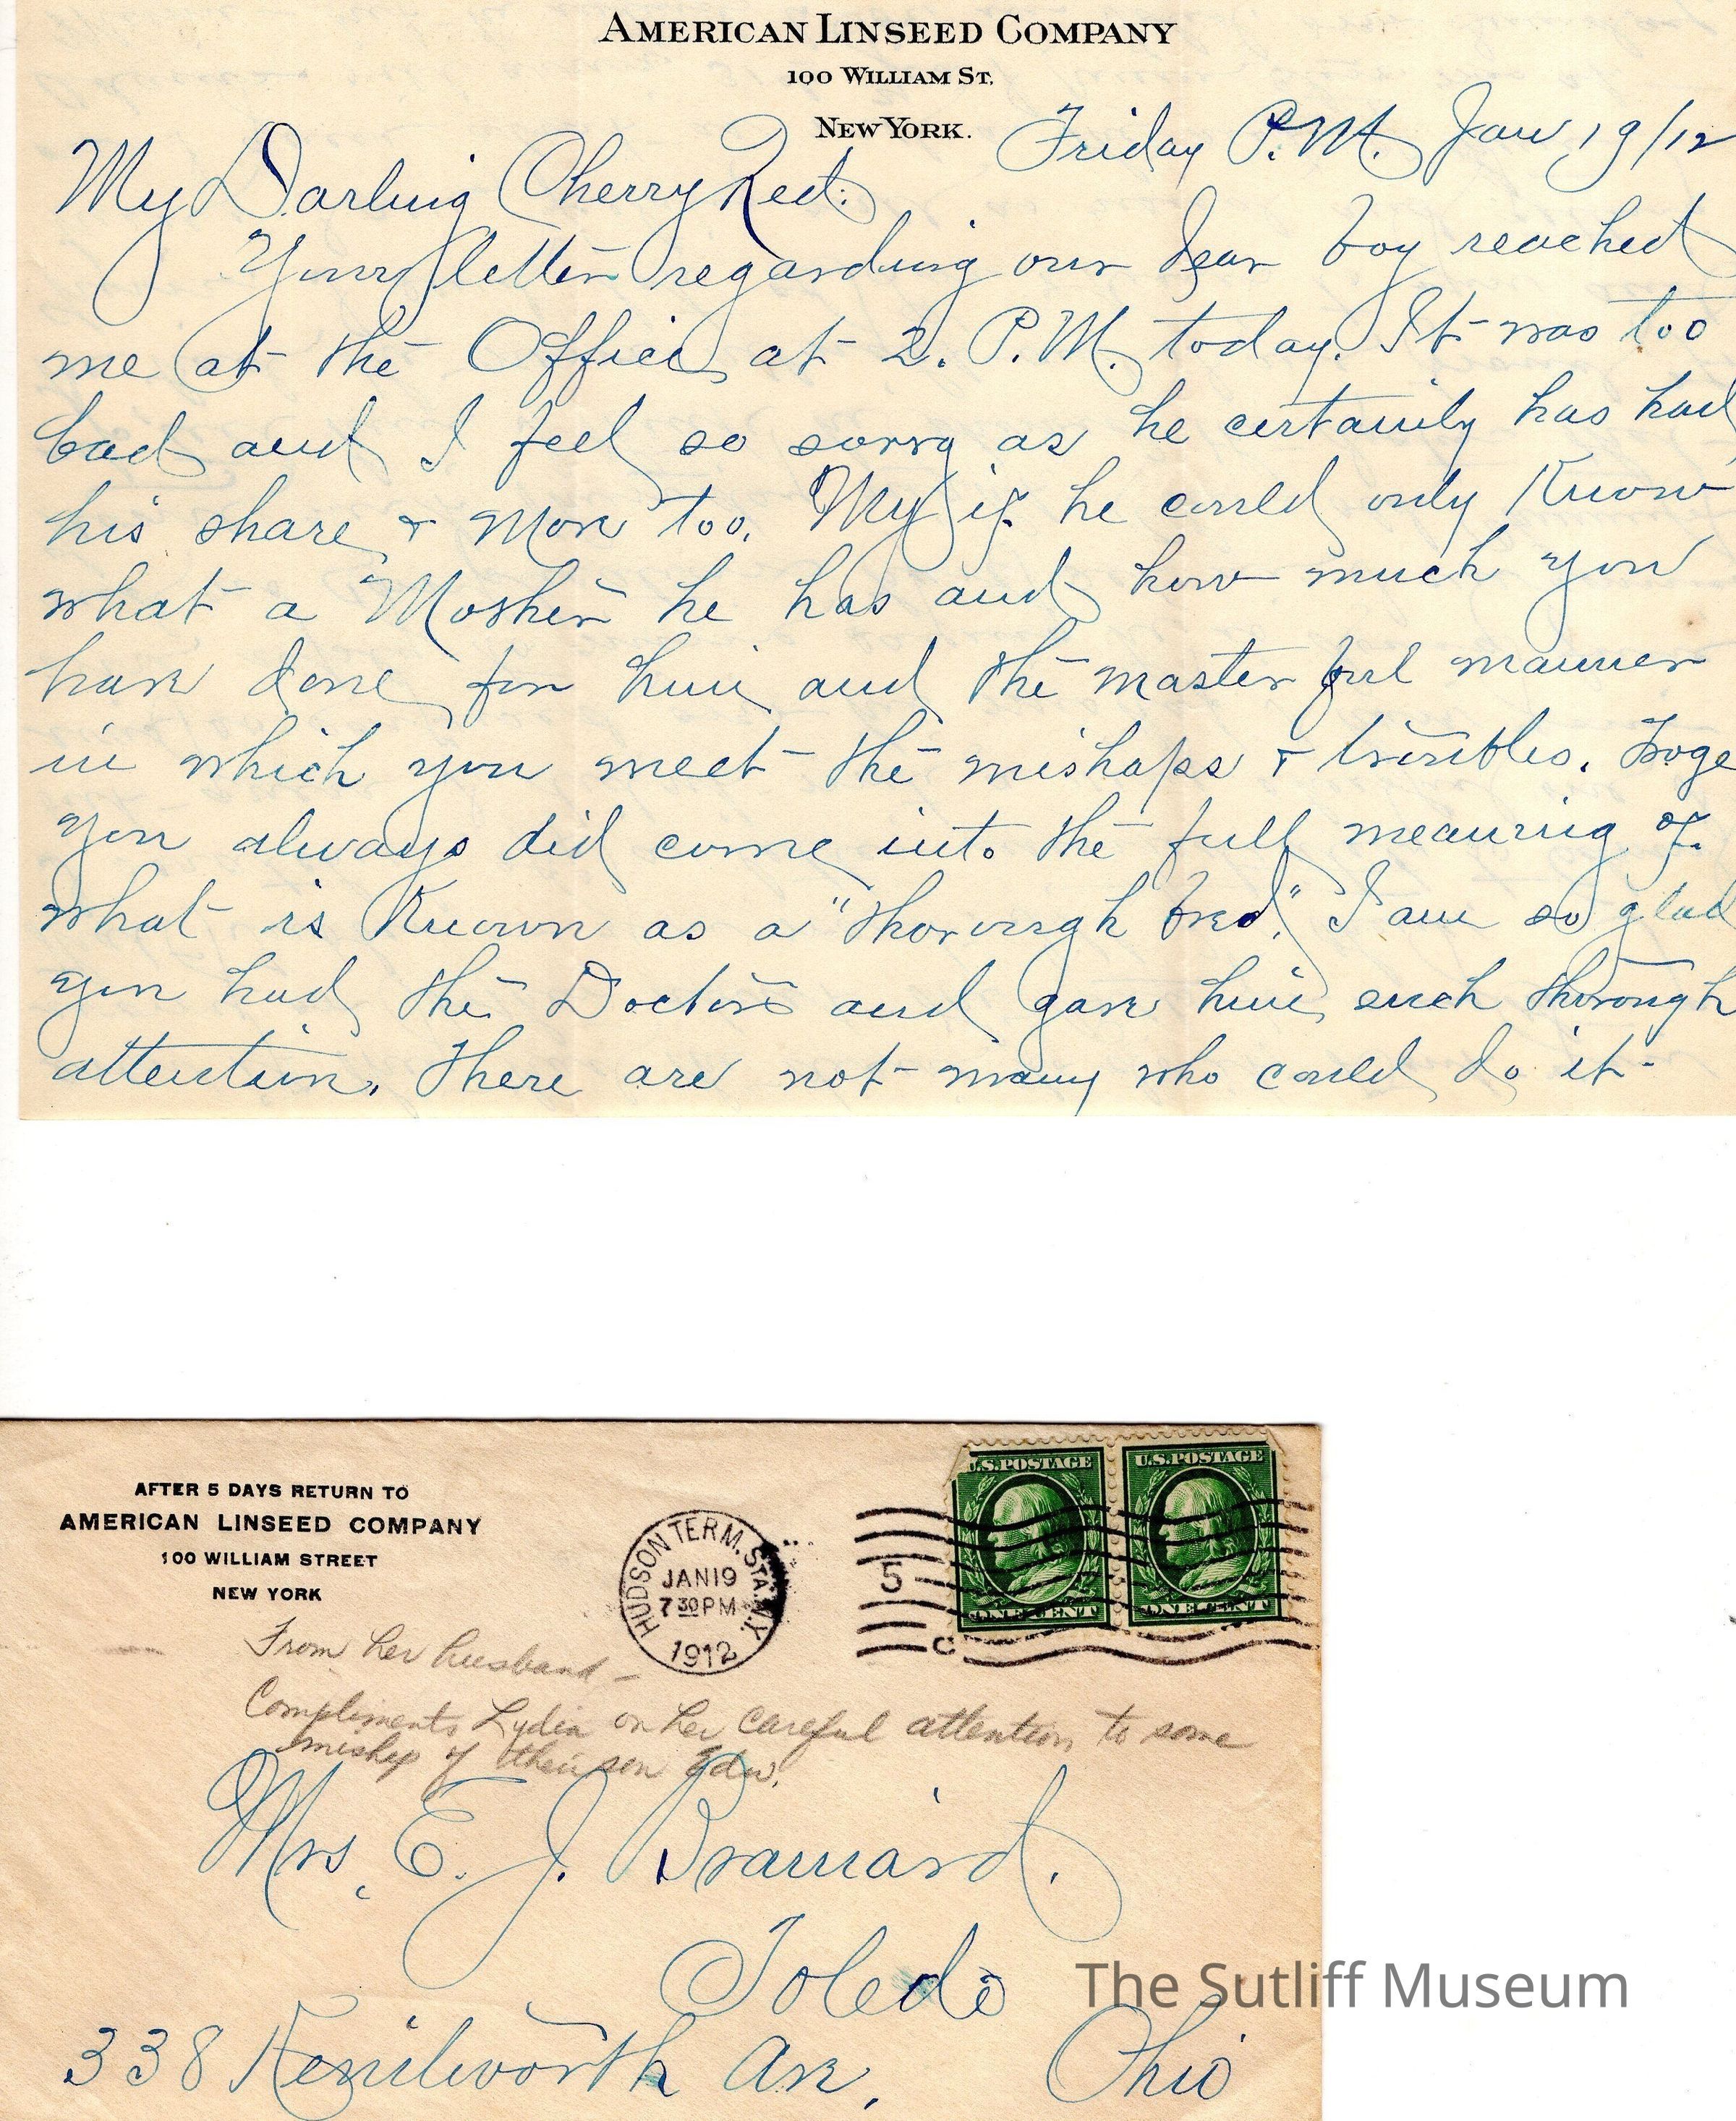 AMERICAN LINSEED COMPANY
100 WILLIAM ST.
NEW YORK.
Friday P.M. Jan 19/12
My Darling Cherry Red:
Your letter regarding our dear boy reached
me at the Office at 2. P.M. today. It was too
bad and I feel so sorry as he certainly has had
his share & more too. My if he could only Know
what a Mother he has and how much you
have done for him and the masterful manner
in which you meet the mishaps & troubles.
you always did come into the full meaning of
what is Known as a "thorough bred". I am so glad
you had the Doctors and gave him such thorough
attention. There are not many who could do it
AFTER 5 DAYS RETURN TO
AMERICAN LINSEED COMPANY
100 WILLIAM STREET
NEW YORK
HUDSON TERM. STA. N.Y.
JAN 19
7 30 PM
1912
5
C
U.S. POSTAGE
ONE CENT
U.S. POSTAGE
ONE CENT
From her husband -
Compliments Lydia on her careful attention to some
mishap of their son Edw.
Mrs. E. J. Brainard.
Toledo
338 Kenilworth Ave, Ohio
The Sutliff Museum